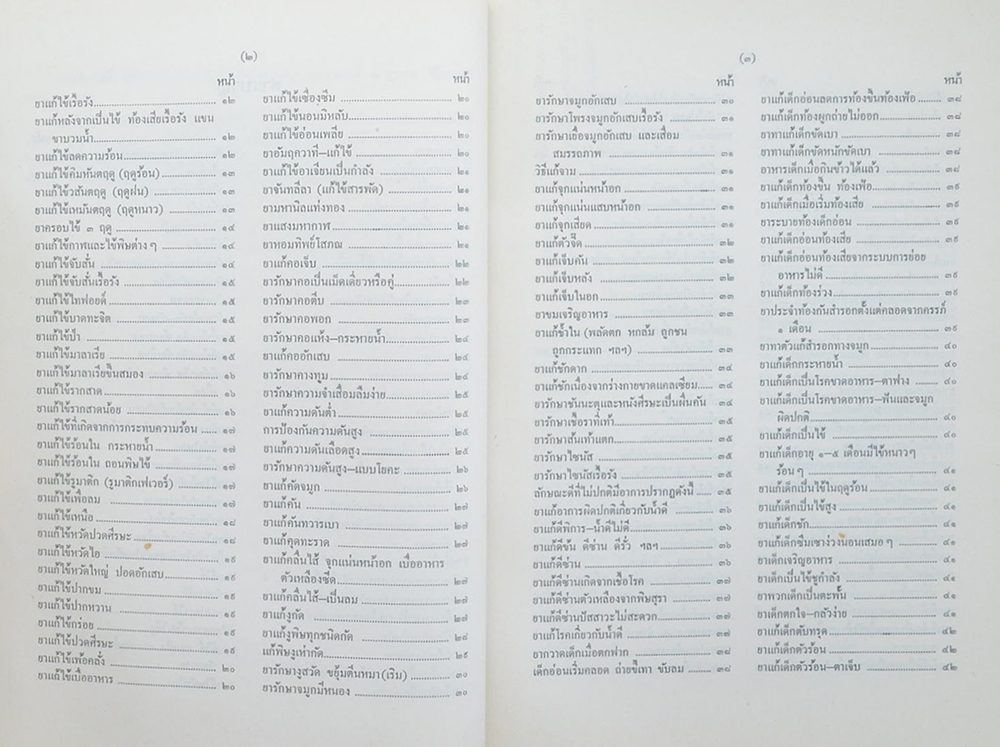 (๒)
หน้า
ยาแก้ไข้เรื้อรัง ๑๒
ยาแก้หลังจากเป็นไข้ ท้องเสียเรื้อรัง แขน
ขาบวมน้ำ ๑๒
ยาแก้ไข้ลดความร้อน ๑๒
ยาแก้ไข้คิมหันตฤดู (ฤดูร้อน) ๑๓
ยาแก้ไข้วสันตฤดู (ฤดูฝน) ๑๓
ยาแก้ไข้เหมันตฤดู (ฤดูหนาว) ๑๓
ยาครอบไข้ ๓ ฤดู ๑๔
ยาแก้ไข้กาฬและไข้พิษต่างๆ ๑๔
ยาแก้ไข้จับสั่น ๑๔
ยาแก้ไข้จับสั่นเรื้อรัง ๑๕
ยาแก้ไข้ไทฟอยด์ ๑๕
ยาแก้ไข้บาดทะจิต ๑๕
ยาแก้ไข้ป่า ๑๕
ยาแก้ไข้มาลาเรีย ๑๕
ยาแก้ไข้มาลาเรียขึ้นสมอง ๑๖
ยาแก้ไข้รากสาด ๑๖
ยาแก้ไข้รากสาดน้อย ๑๖
ยาแก้ไข้ที่เกิดจากการกระทบความร้อน ๑๗
ยาแก้ไข้ร้อนใน กระหายน้ำ ๑๗
ยาแก้ไข้ร้อนใน ถอนพิษไข้ ๑๗
ยาแก้ไข้รูมาติก (รูมาติกเฟเวอร์) ๑๗
ยาแก้ไข้เพื่อลม ๑๗
ยาแก้ไข้เหนือ ๑๘
ยาแก้ไข้หวัดปวดศีรษะ ๑๘
ยาแก้ไข้หวัดไอ ๑๙
ยาแก้ไข้หวัดใหญ่ ปอดอักเสบ ๑๙
ยาแก้ไข้ปากขม ๑๙
ยาแก้ไข้ปากหวาน ๑๙
ยาแก้ไข้กร่อย ๑๙
ยาแก้ไข้ปวดศีรษะ ๑๙
ยาแก้ไข้เพ้อคลั่ง ๒๐
ยาแก้ไข้เบื่ออาหาร ๒๐
หน้า
ยาแก้ไข้เซื่องซึม ๒๐
ยาแก้ไข้นอนมิหลับ ๒๐
ยาแก้ไข้อ่อนเพลีย ๒๐
ยาอัมฤควาที—แก้ไข้ ๒๐
ยาแก้ไข้อาเจียนเป็นกำลัง ๒๑
ยาจันทลีลา (แก้ไข้สารพัด) ๒๑
ยามหานิลแท่งทอง ๒๑
ยาแสงมหากาฬ ๒๑
ยาหอมทิพย์โสภณ ๒๑
ยาแก้คอเจ็บ ๒๒
ยารักษาคอเป็นเม็ดเดี่ยวหรือคู่ ๒๒
ยารักษาคอตีบ ๒๓
ยารักษาคอพอก ๒๓
ยารักษาคอแห้ง—กระหายน้ำ ๒๔
ยาแก้คออักเสบ ๒๔
ยารักษาคางทูม ๒๔
ยารักษาความจำเสื่อมลืมง่าย ๒๕
ยาแก้ความดันต่ำ ๒๕
การป้องกันความดันสูง ๒๕
ยาแก้ความดันเลือดสูง ๒๕
ยารักษาความดันสูง—แบบโยคะ ๒๖
ยาแก้คัดจมูก ๒๖
ยาแก้คัน ๒๗
ยาแก้คันทวารเบา ๒๗
ยาแก้คุดทะราด ๒๗
ยาแก้คลื่นไส้ จุกแน่นหน้าอก เบื่ออาหาร
ตัวเหลืองซีด ๒๗
ยาแก้คลื่นไส้—เป็นลม ๒๗
ยาแก้งูกัด ๒๗
ยาแก้งูพิษทุกชนิดกัด ๒๘
แก้พิษงูเห่ากัด ๒๙
ยารักษางูสวัด ขยุ้มตีนหมา (เริม) ๓๐
ยารักษาจมูกมีหนอง ๓๐
(๓)
หน้า
ยารักษาจมูกอักเสบ ๓๐
ยารักษาโพรงจมูกอักเสบเรื้อรัง ๓๑
ยารักษาเยื่อจมูกอักเสบ และเสื่อม
สมรรถภาพ ๓๑
วิธีแก้จาม ๓๑
ยาแก้จุกแน่นหน้าอก ๓๑
ยาแก้จุกแน่นแสบหน้าอก ๓๑
ยาแก้จุกเสียด ๓๑
ยาแก้ตัวจี๊ด ๓๒
ยาแก้เจ็บคัน ๓๒
ยาแก้เจ็บหลัง ๓๒
ยาแก้เจ็บในอก ๓๓
ยาขมเจริญอาหาร ๓๓
ยาแก้ช้ำใน (พลัดตก หกล้ม ถูกชน
ถูกกระแทก ฯลฯ) ๓๓
ยาแก้ชักดาก ๓๔
ยาแก้ชักเนื่องจากร่างกายขาดแคลเซี่ยม ๓๔
ยารักษาชันนะตุและหนังศีรษะเป็นผื่นคัน ๓๔
ยารักษาเชื้อราที่เท้า ๓๕
ยารักษาส้นเท้าแตก ๓๕
ยารักษาไซนัส ๓๕
ยารักษาไซนัสเรื้อรัง ๓๕
ลักษณะดีที่ไม่ปกติมีอาการปรากฏดังนี้ ๓๕
ยาแก้อาการผิดปกติเกี่ยวกับน้ำดี ๓๖
ยาแก้ดีพิการ—น้ำดีไม่ดี ๓๖
ยาแก้ดีข้น ดีซ่าน ดีรั่ว ฯลฯ ๓๖
ยาแก้ดีซ่าน ๓๖
ยาแก้ดีซ่านเกิดจากเชื้อโรค ๓๗
ยาแก้ดีซ่านตัวเหลืองจากพิษสุรา ๓๗
ยาแก้ดีซ่านปัสสาวะไม่สะดวก ๓๗
ยาแก้โรคเกี่ยวกับน้ำดี ๓๗
ยากวาดเด็กเมื่อตกฟาก ๓๘
เด็กอ่อนเริ่มคลอด ถ่ายขี้เทา ขับลม ๓๘
หน้า
ยาแก้เด็กอ่อนลดการท้องขึ้นท้องเฟ้อ ๓๘
ยาแก้เด็กท้องผูกถ่ายไม่ออก ๓๘
ยาทาแก้เด็กขัดเบา ๓๘
ยาทาแก้เด็กขัดหนักขัดเบา ๓๘
อาหารเด็กเมื่อกินข้าวได้แล้ว ๓๘
ยาแก้เด็กท้องขึ้น ท้องเฟ้อ ๓๙
ยาแก้เด็กเมื่อเริ่มท้องเสีย ๓๙
ยาระบายท้องเด็กอ่อน ๓๙
ยาแก้เด็กอ่อนท้องเสีย ๓๙
ยาแก้เด็กอ่อนท้องเสียจากระบบการย่อย
อาหารไม่ดี ๓๙
ยาแก้เด็กท้องร่วง ๓๙
ยาประจำท้องกันสำรอกตั้งแต่คลอดจากครรภ์
๑ เดือน ๓๙
ยาทาตัวแก้สำรอกทางจมูก ๔๐
ยาแก้เด็กกระหายน้ำ ๔๐
ยาแก้เด็กเป็นโรคขาดอาหาร—ตาฟาง ๔๐
ยาแก้เด็กเป็นโรคขาดอาหาร—ฟันและจมูก
ผิดปกติ ๔๐
ยาแก้เด็กเป็นไข้ ๔๐
ยาแก้เด็กอายุ ๑—๕ เดือนมีไข้หนาวๆ
ร้อนๆ ๔๑
ยาแก้เด็กเป็นไข้ในฤดูร้อน ๔๑
ยาแก้เด็กเป็นไข้สูง ๔๑
ยาแก้เด็กชัก ๔๑
ยาแก้เด็กซึมเซาง่วงนอนเสมอๆ ๔๑
ยาเด็กเจริญอาหาร ๔๑
ยาแก้เด็กเป็นไข้ชูกำลัง ๔๑
ยาพวกเด็กเป็นตะพั้น ๔๑
ยาเด็กตกใจ—กลัวง่าย ๔๑
ยาแก้เด็กตับทรุด ๔๒
ยาแก้เด็กตัวร้อน ๔๒
ยาแก้เด็กตัวร้อน—ตาเจ็บ ๔๒